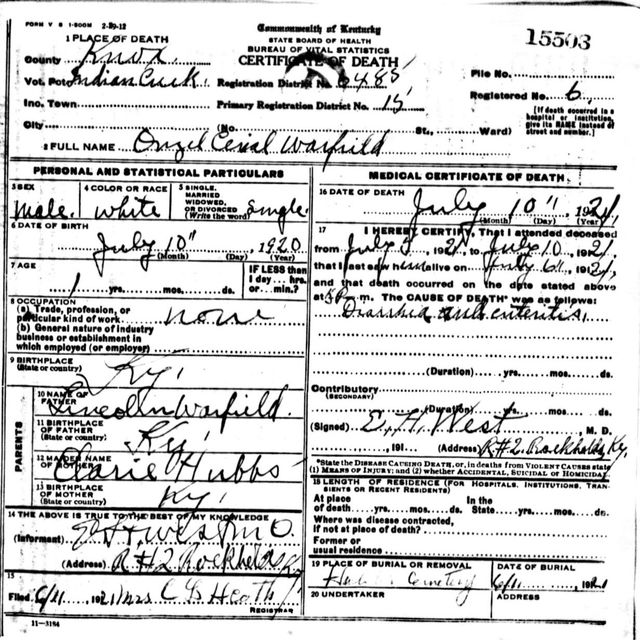 FORM V S 1-500M 2-29-12
Commonwealth of Kentucky
STATE BOARD OF HEALTH
BUREAU OF VITAL STATISTICS
CERTIFICATE OF DEATH
15503
1 PLACE OF DEATH
County Knox
Vot. Pct Indian Creek Registration District No. 6485 File No.
Inc. Town Primary Registration District No. 15 Registered No. 6.
City (No. St., Ward)
[If death occurred in a hospital or institution, give its NAME instead of street and number.]
2 FULL NAME Warfield
PERSONAL AND STATISTICAL PARTICULARS
3 SEX male.
4 COLOR OR RACE white
5 SINGLE, MARRIED WIDOWED, OR DIVORCED (Write the word) single.
6 DATE OF BIRTH
July 10" 1920
(Month) (Day) (Year)
7 AGE
1 yrs. mos. ds.
IF LESS than 1 day... hrs. or... min.?
8 OCCUPATION
(a) Trade, profession, or particular kind of work none
(b) General nature of industry business or establishment in which employed (or employer)
9 BIRTHPLACE
(State or country) Ky.
PARENTS
10 NAME OF FATHER Lincoln Warfield.
11 BIRTHPLACE OF FATHER (State or country) Ky.
12 MAIDEN NAME OF MOTHER Hubbs
13 BIRTHPLACE OF MOTHER (State or country) Ky.
14 THE ABOVE IS TRUE TO THE BEST OF MY KNOWLEDGE
(Informant) E H West M D.
(Address) R#2 Rockholds Ky
15
Filed 6/11, 1921 Mrs C B Heath
REGISTRAR
11—3184
MEDICAL CERTIFICATE OF DEATH
16 DATE OF DEATH
July 10", 1921
(Month) (Day) (Year)
17 I HEREBY CERTIFY, That I attended deceased
from July 1921, to July 10 1921,
that I last saw him alive on July 6", 1921,
and that death occurred on the date stated above
at m. The CAUSE OF DEATH* was as follows:
Diarrhea and enteritis.
(Duration) yrs. mos. ds.
Contributory
(SECONDARY)
(Duration) yrs. mos. ds.
(Signed) E. H. West, M. D.
, 191 (Address) R#2 Rockholds Ky.
*State the DISEASE CAUSING DEATH, or, in deaths from VIOLENT CAUSES state (1) MEANS OF INJURY; and (2) whether ACCIDENTAL, SUICIDAL or HOMICIDAL
18 LENGTH OF RESIDENCE (FOR HOSPITALS, INSTITUTIONS, TRANSIENTS OR RECENT RESIDENTS)
At place of death yrs. mos. ds. In the State yrs. mos. ds.
Where was disease contracted,
If not at place of death?
Former or
usual residence
19 PLACE OF BURIAL OR REMOVAL
Cemetery
DATE OF BURIAL
6/11, 1921
20 UNDERTAKER
ADDRESS